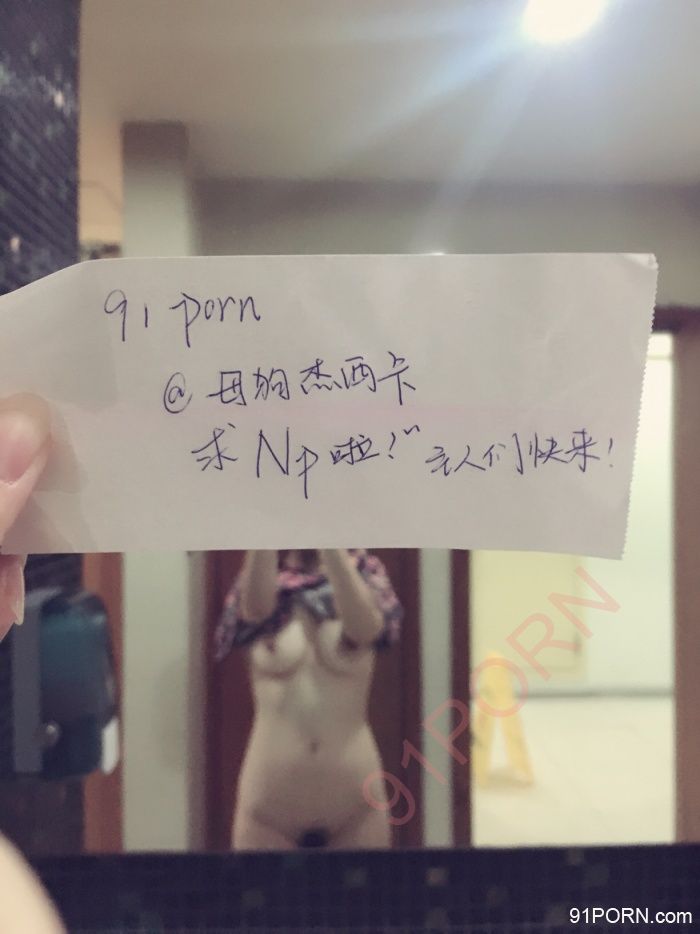 91 porn
@母狗杰西卡
求 NP啦！~ 主人们快来！
91PORN
91PORN.com